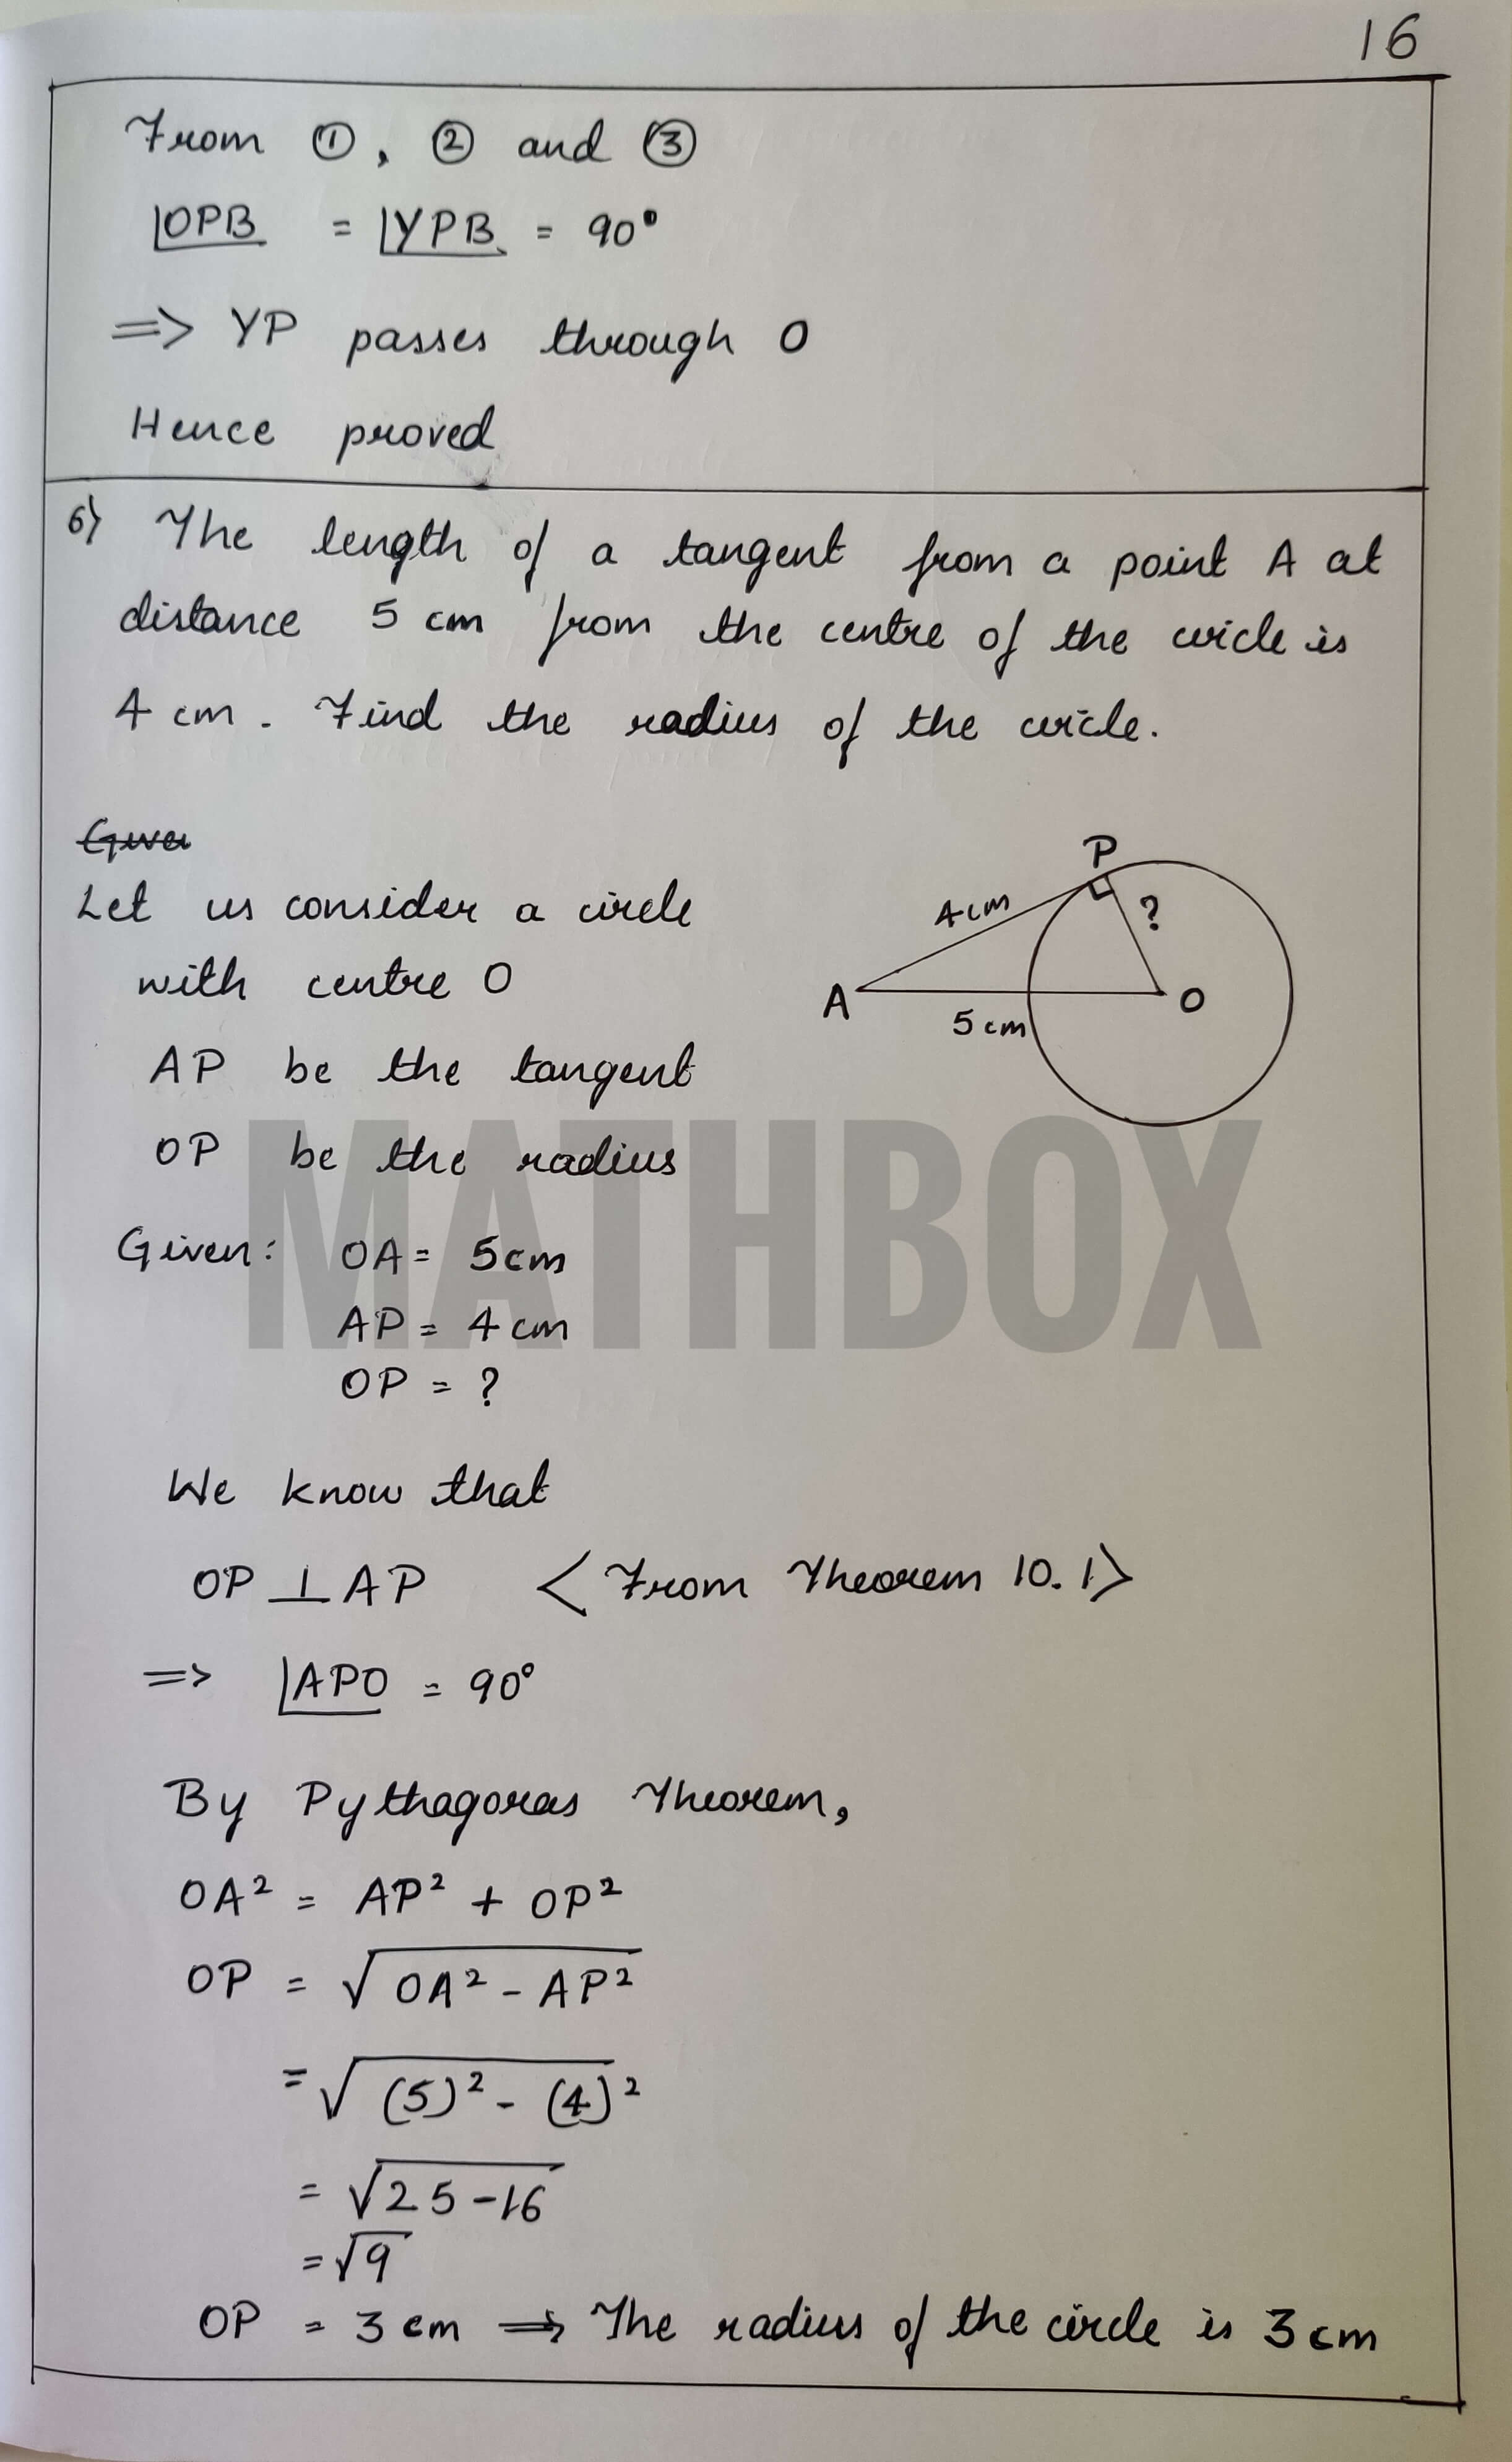 16
From ①, ② and ③
∠OPB = ∠YPB = 90°
=> YP passes through O
Hence proved
6) The length of a tangent from a point A at
distance 5 cm from the centre of the circle is
4 cm. Find the radius of the circle.
Given
Let us consider a circle
with centre O
AP be the tangent
OP be the radius
P
4cm
?
A
O
5cm
MATHBOX
Given: OA = 5cm
AP = 4cm
OP = ?
We know that
OP ⊥ AP <From Theorem 10.1>
=> ∠APO = 90°
By Pythagoras Theorem,
OA² = AP² + OP²
OP = √OA² - AP²
= √(5)² - (4)²
= √25-16
= √9
OP = 3cm => The radius of the circle is 3cm